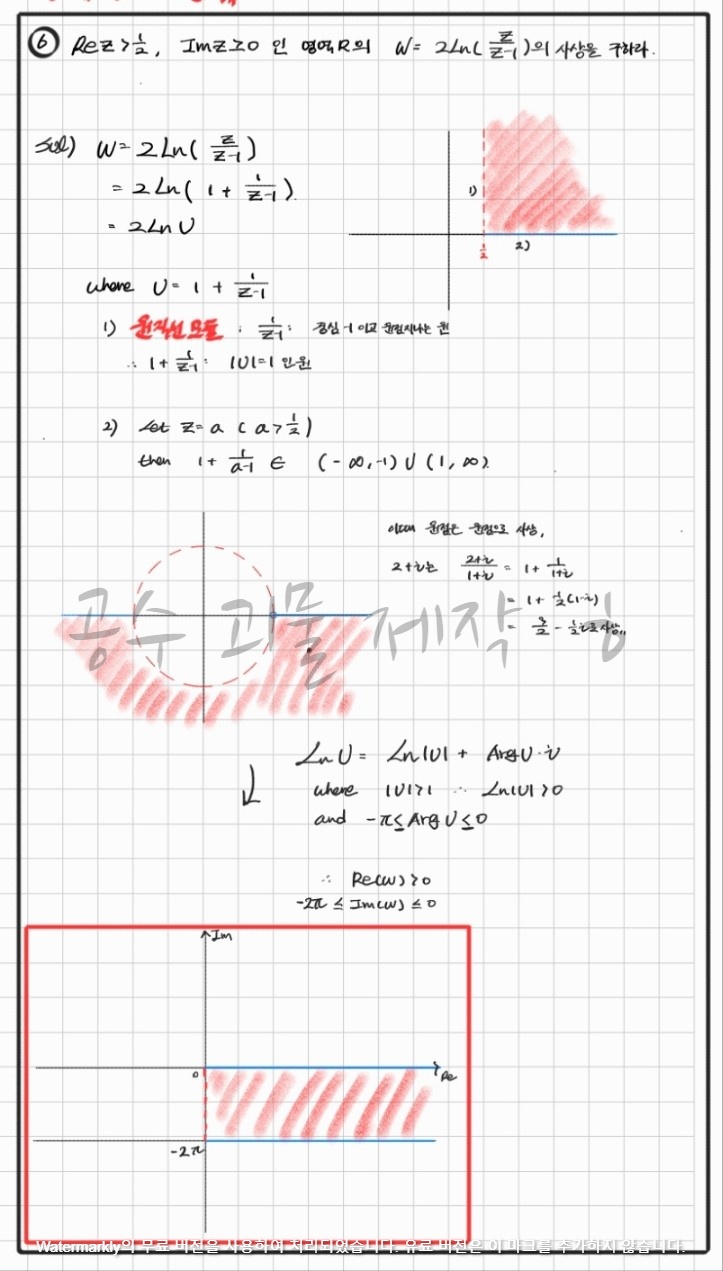 ⑥ Re z > 1/2 , Im z ≥ 0 인 영역 R의 W = 2Ln( z/(z-1) )의 사상을 구하라.
sol) W = 2Ln( z/(z-1) )
= 2Ln( 1 + 1/(z-1) )
= 2Ln U
1)
1/2
2)
where U = 1 + 1/(z-1)
1) 원직선 모듈 : 1/(z-1) : 중심 -1 이고 원점지나는 원
∴ 1 + 1/(z-1) : |U|=1 인 원
2) Let z = a ( a > 1/2 )
then 1 + 1/(a-1) ∈ (-∞, -1) ∪ (1, ∞)
이때 원점은 원점으로 사상,
2+i는 (2+i)/(1+i) = 1 + 1/(1+i)
= 1 + 1/2(1-i)
= 3/2 - 1/2 i로 사상,,
공수 괴물 제작
Ln U = Ln|U| + Arg U · i
where |U|>1 ∴ Ln|U| > 0
and -π ≤ Arg U ≤ 0
∴ Re(w) > 0
-2π ≤ Im(w) ≤ 0
Im
0
Re
-2π
Watermarkly의 무료 버전을 사용하여 처리되었습니다. 유료 버전은 이 마크를 추가하지 않습니다.